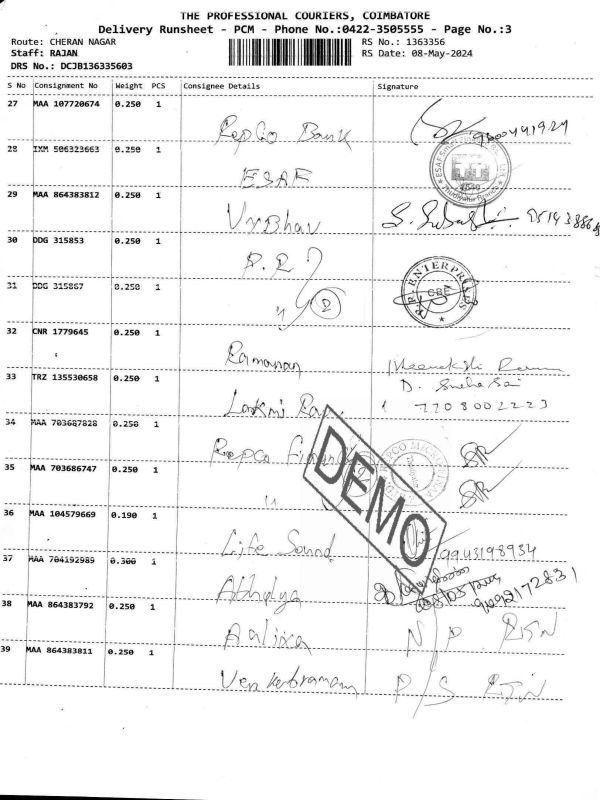 THE PROFESSIONAL COURIERS, COIMBATORE
Delivery Runsheet - PCM - Phone No.:0422-3505555 - Page No.:3
Route: CHERAN NAGAR
RS No.: 1363356
Staff: RAJAN
RS Date: 08-May-2024
DRS No.: DCJB136335603
S No Consignment No Weight PCS Consignee Details Signature
27 MAA 107720674 0.250 1 Repco Bank
28 IXM 506323663 0.250 1 ESAF
29 MAA 864383812 0.250 1 Vybhav
30 DDG 315853 0.250 1 P.R
R.R. ENTERPRISES
CBE
31 DDG 315867 0.250 1 " 2
32 CNR 1779645 0.250 1 Ramanan
33 TRZ 135530658 0.250 1 Laxmi D. Sneha Sai
7708002223
34 MAA 703687828 0.250 1 Repco
35 MAA 703686747 0.250 1 "
DEMO
36 MAA 104579669 0.190 1 Life Sound 9943198934
37 MAA 704192989 0.300 1
38 MAA 864383792 0.250 1 N/P RTN
39 MAA 864383811 0.250 1 Venkatraman P/S RTN